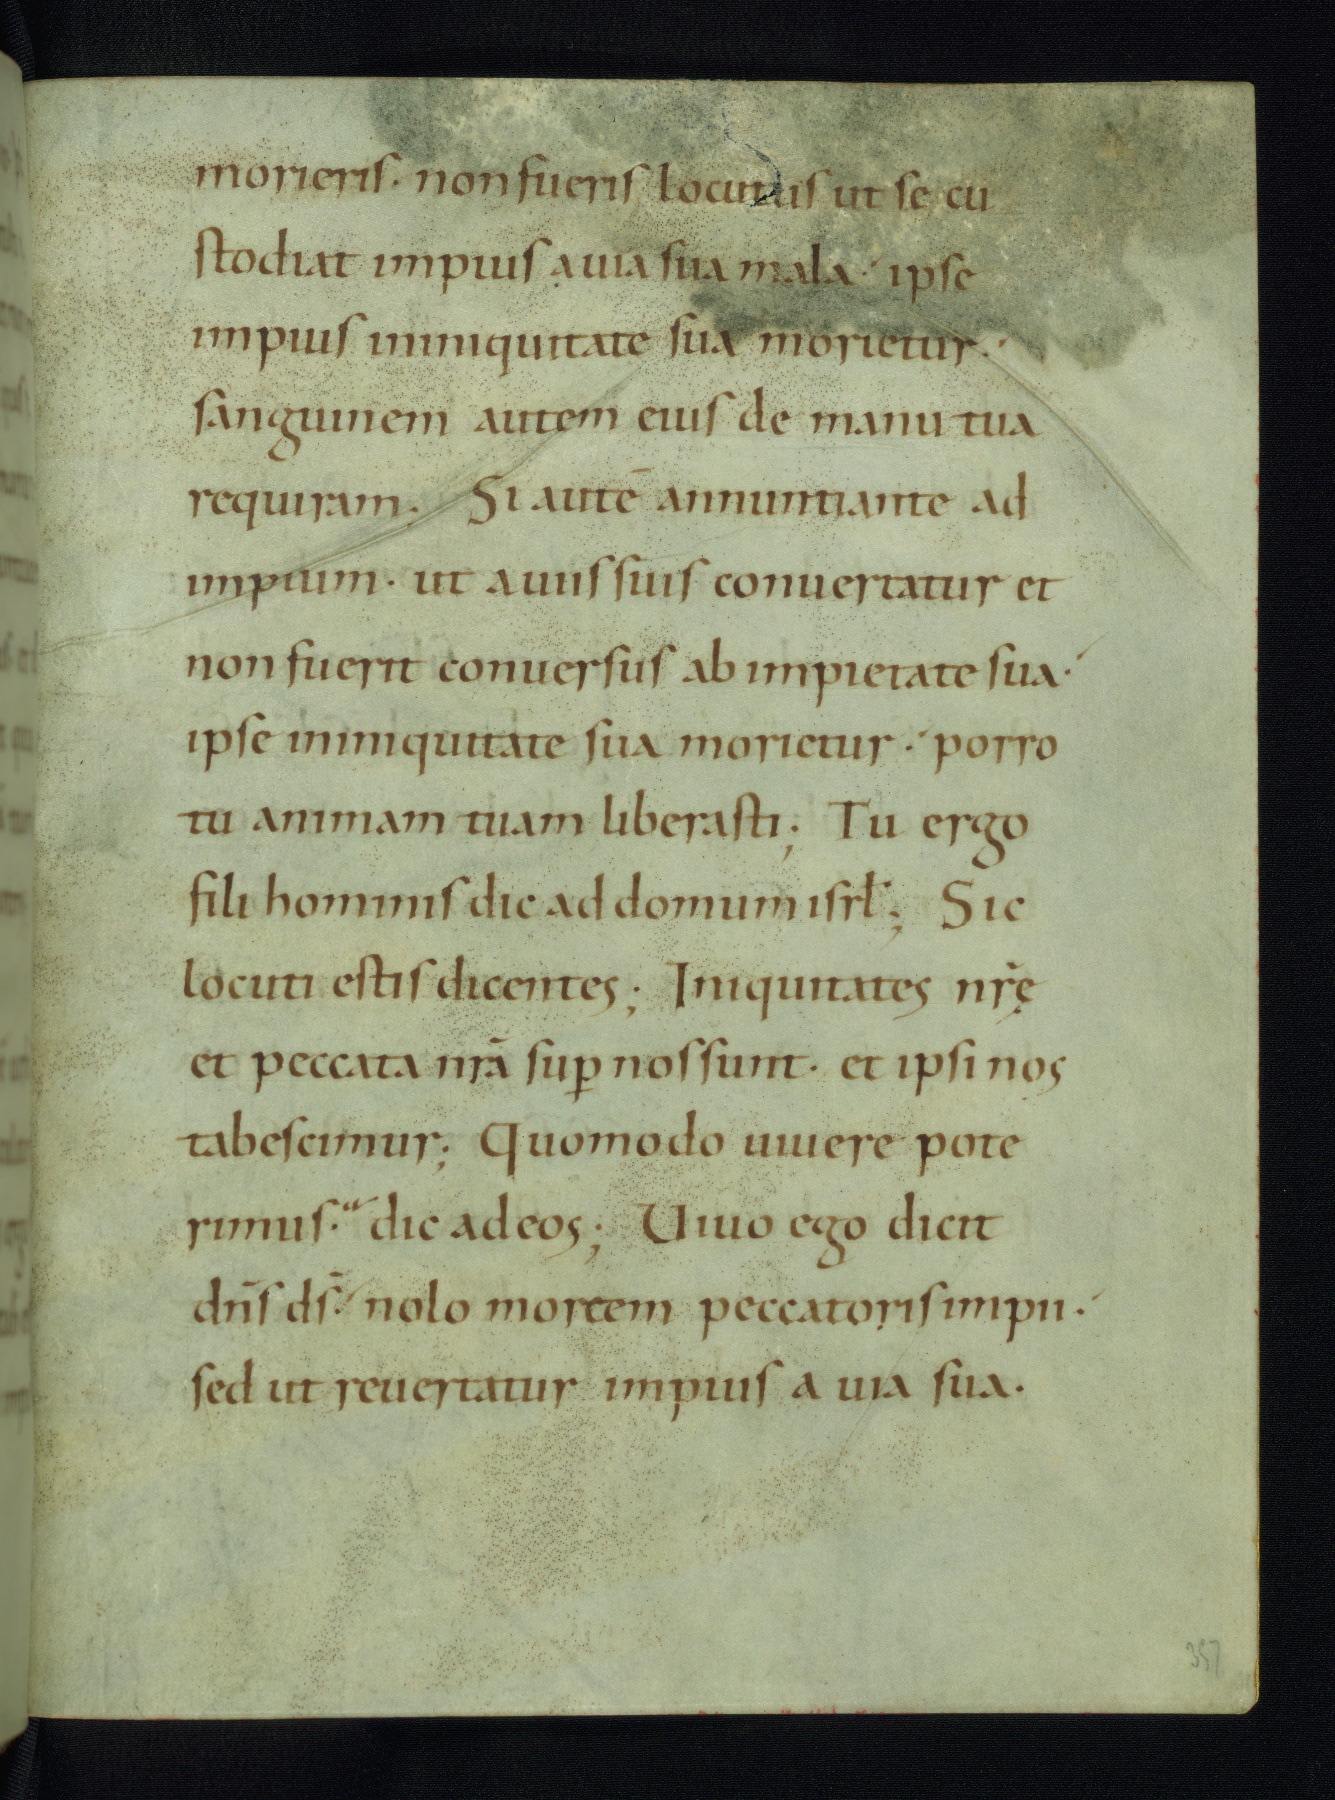 morieris. non fueris locutus ut se cu
stodiat impius a uia sua mala. ipse
impius in iniquitate sua morietur.
sanguinem autem eius de manu tua
requiram. Si autē annuntiante ad
impium. ut a uiis suis conuertatur et
non fuerit conuersus ab impietate sua.
ipse in iniquitate sua morietur. porro
tu animam tuam liberasti; Tu ergo
fili hominis dic ad domum isrl; Sic
locuti estis dicentes; Iniquitates nr̄ę
et peccata nr̄a suꝑ nos sunt. et ipsi nos
tabescimur; Quomodo uiuere pote
rimus. dic ad eos; Uiuo ego dicit
dn̄s ds̄. nolo mortem peccatoris impii.
sed ut reuertatur impius a uia sua.
357